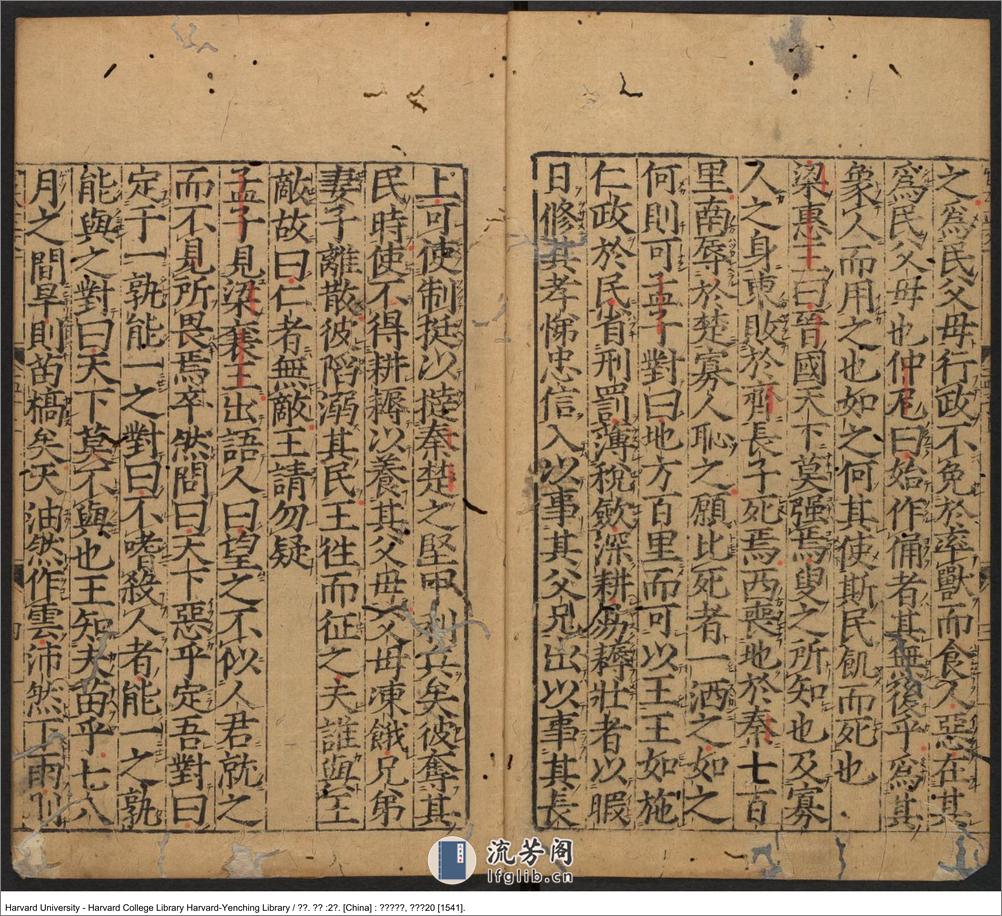 之為民父母行政不免於率獸而食人惡在其
為民父母也仲尼曰始作俑者其無後乎為其
象人而用之也如之何其使斯民飢而死也
梁惠王曰晉國天下莫强焉叟之所知也及寡
人之身東敗於齊長子死焉西喪地於秦七百
里南辱於楚寡人恥之願比死者一洒之如之
何則可孟子對曰地方百里而可以王王如施
仁政於民省刑罰薄稅斂深耕易耨壯者以暇
日修其孝悌忠信入以事其父兄出以事其長
上可使制挺以撻秦楚之堅甲利兵矣彼奪其
民時使不得耕耨以養其父母父母凍餓兄弟
妻子離散彼陷溺其民王往而征之夫誰與王
敵故曰仁者無敵王請勿疑
孟子見梁襄王出語人曰望之不似人君就之
而不見所畏焉卒然問曰天下惡乎定吾對曰
定于一孰能一之對曰不嗜殺人者能一之孰
能與之對曰天下莫不與也王知夫苗乎七八
月之間旱則苗槁矣天油然作雲沛然下雨則
流芳阁
lfglib.cn
Harvard University - Harvard College Library Harvard-Yenching Library / ??. ?? :2?. [China] : ?????, ???20 [1541].